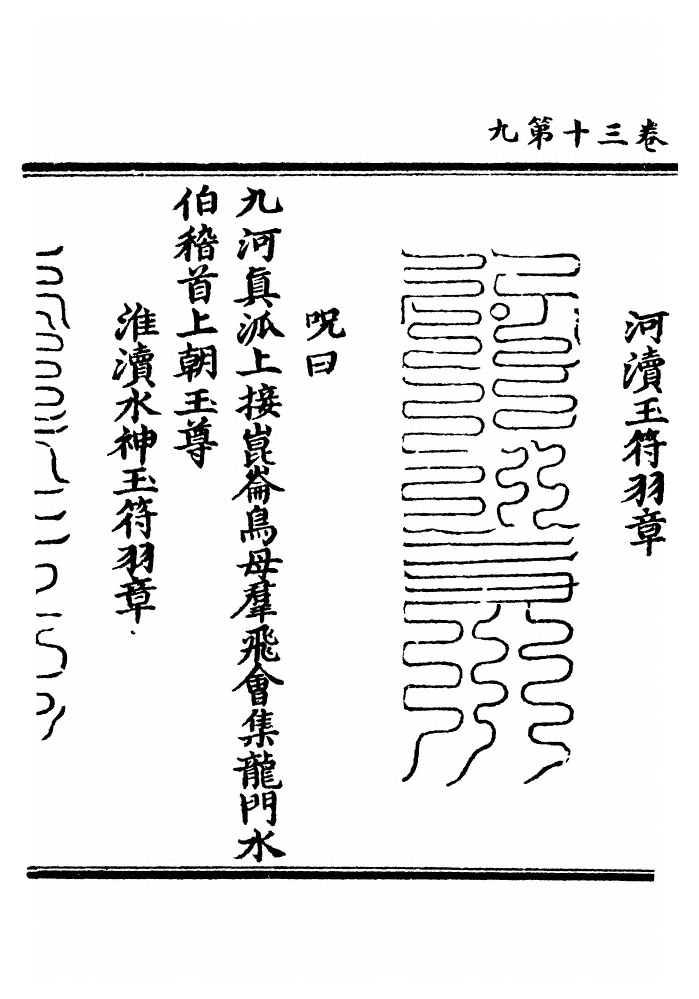 卷三十第九
河瀆玉符羽章
呪曰
九河真泒上接崑崙鳥母羣飛會集龍門水
伯稽首上朝玉尊
淮瀆水神玉符羽章